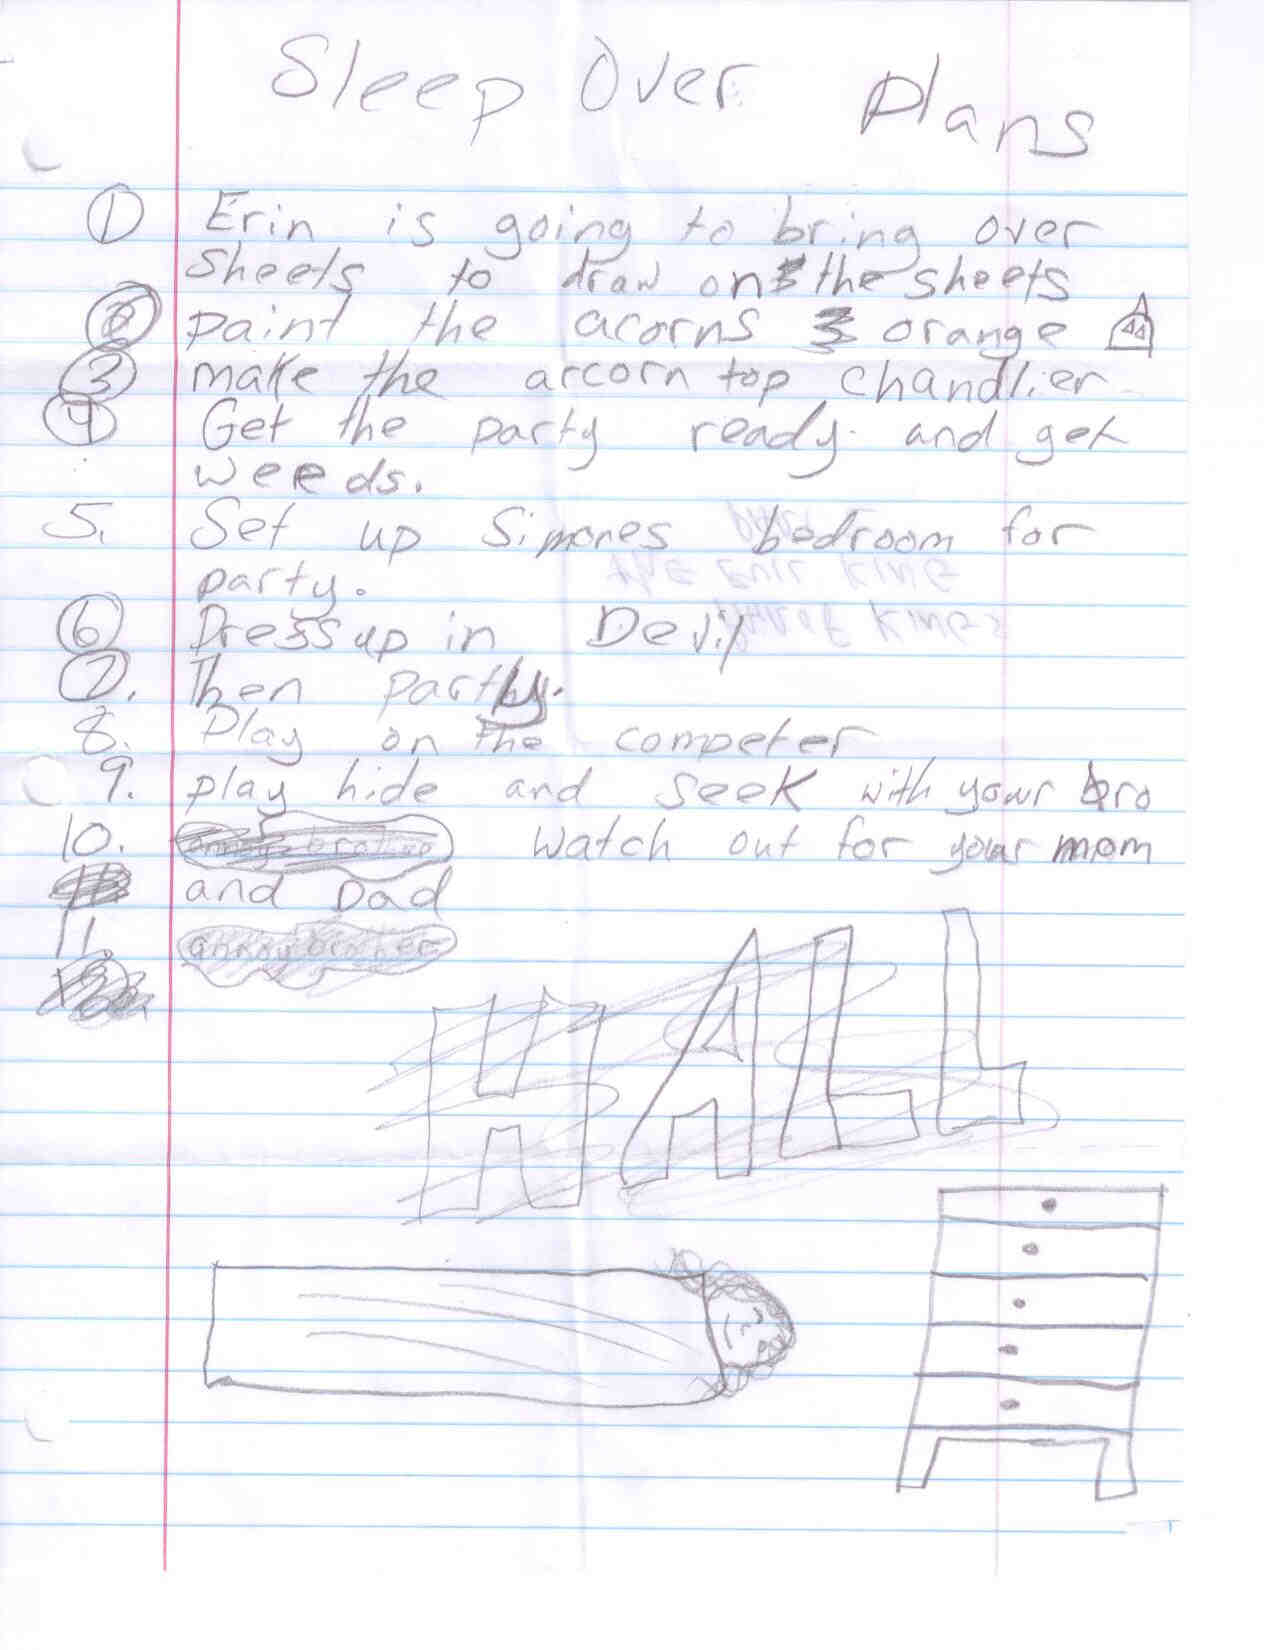 Sleep Over Plans
1 Erin is going to bring over
sheets to draw on the sheets
2 paint the acorns orange
3 make the arcorn top chandlier
4 Get the party ready and get
weeds.
5. Set up Simones bedroom for
party.
6 Dress up in Devil
7. Then party.
8. Play on the competer
9. play hide and seek with your bro
10. annoy brother watch out for your mom
and Dad
11. annoy brother
HALL